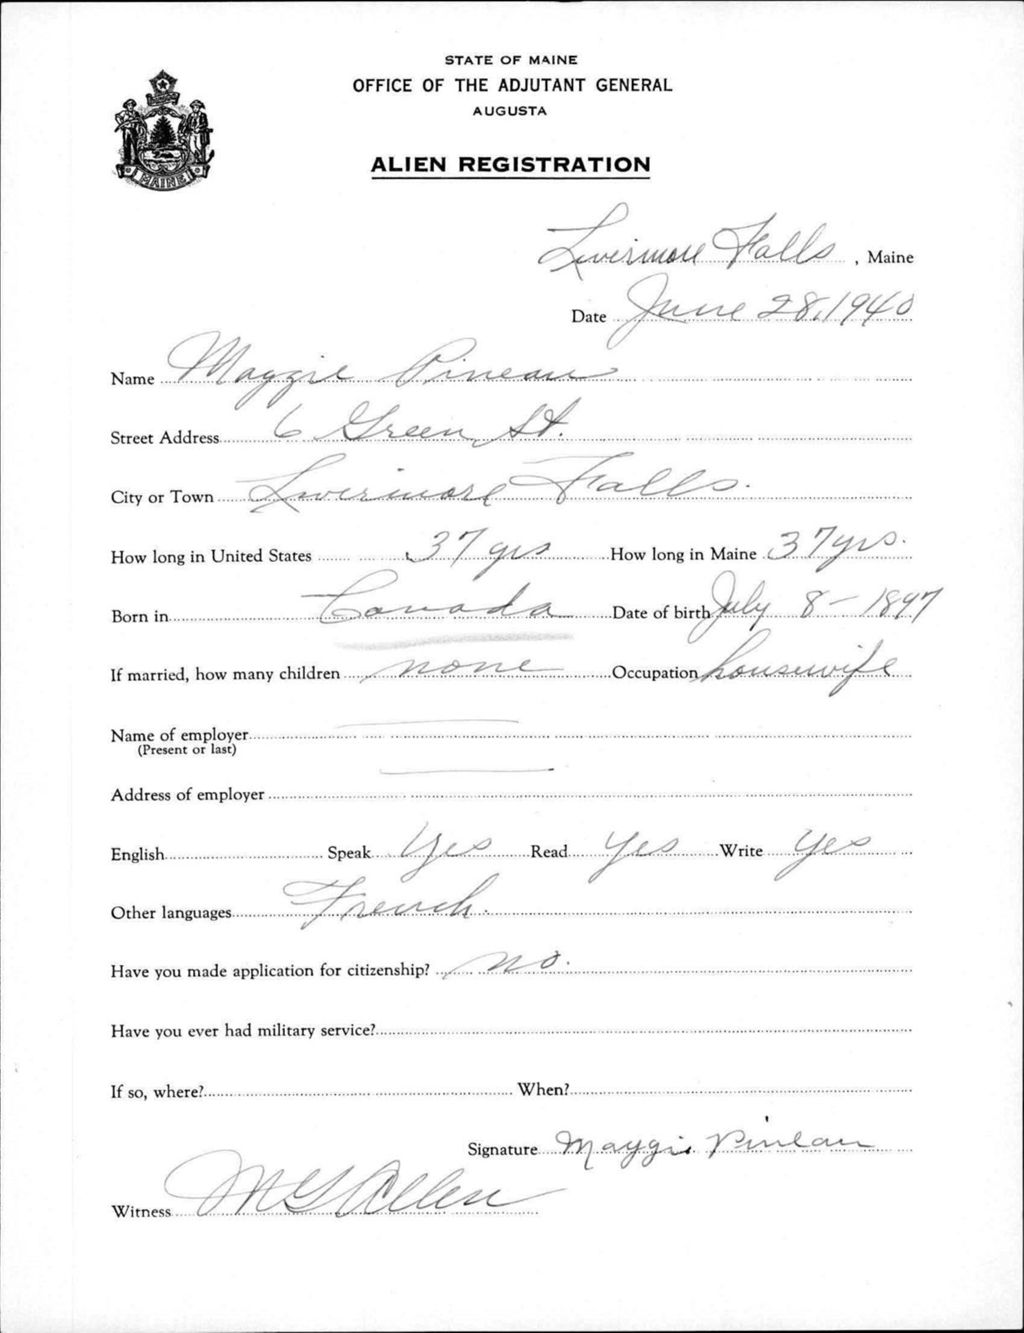 STATE OF MAINE
OFFICE OF THE ADJUTANT GENERAL
AUGUSTA
ALIEN REGISTRATION
MAINE
Livermore Falls, Maine
Date June 28, 1940
Name Maggie Pineau
Street Address 6 Green St.
City or Town Livermore Falls.
How long in United States 37 yrs How long in Maine 37 yrs.
Born in Canada Date of birth July 8 - 1897
If married, how many children none Occupation housewife
Name of employer
(Present or last)
Address of employer
English Speak Yes Read Yes Write Yes
Other languages French.
Have you made application for citizenship? no.
Have you ever had military service?
If so, where? When?
Signature Maggie Pineau
Witness Allen